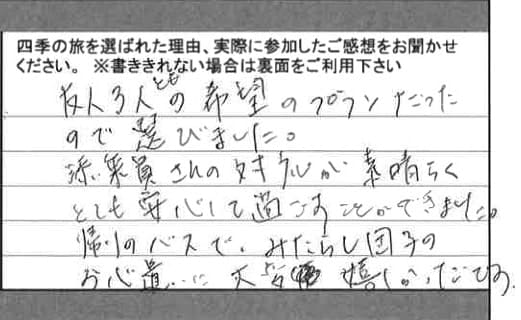 四季の旅を選ばれた理由、実際に参加したご感想をお聞かせ
ください。 ※書ききれない場合は裏面をご利用下さい
友人3人ともの希望のプランだった
ので選びました。
添乗員さんの対応が素晴らしく
とても安心して過ごすことができました。
帰りのバスで、みたらし団子の
お心遣いに大変嬉しかったです。